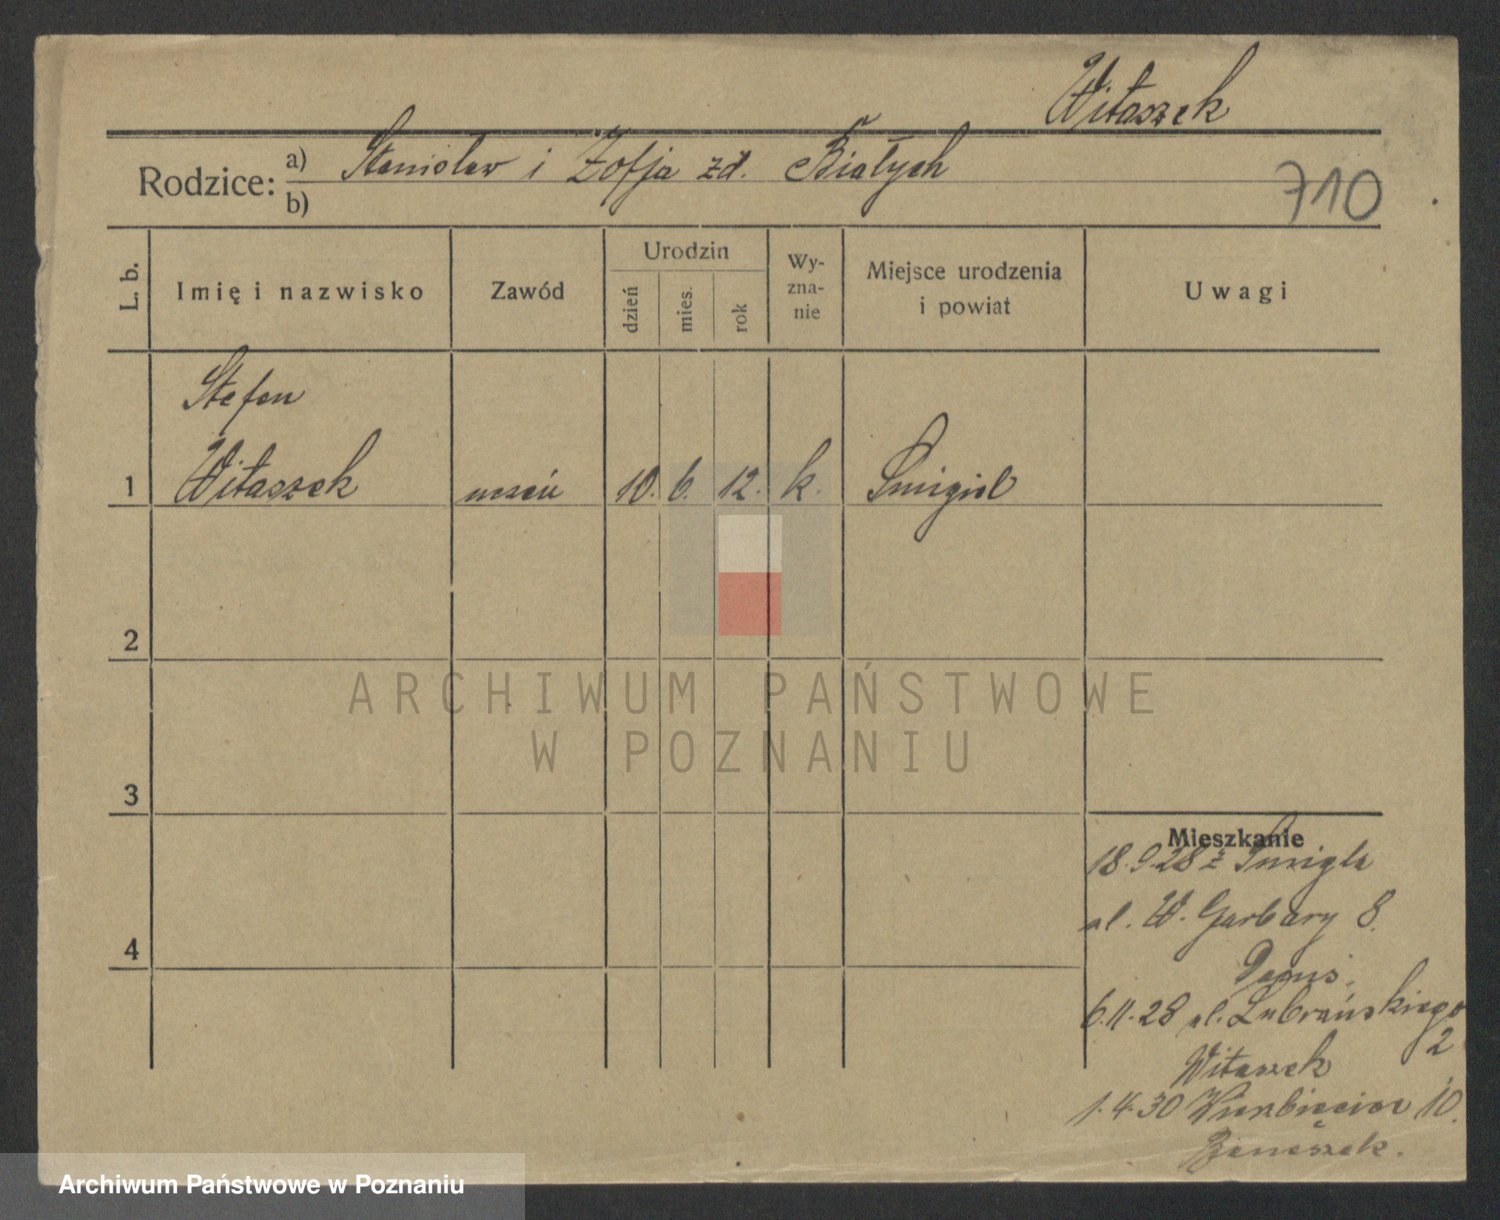 Witaszek
Rodzice: a) Stanisław i Zofja zd. Białych
b)
710
L. b. Imię i nazwisko Zawód Urodzin dzień mies. rok Wy-zna-nie Miejsce urodzenia i powiat Uwagi
Stefan
1 Witaszek uczeń 10. 6. 12. k. Śmigiel
2
ARCHIWUM PAŃSTWOWE
W POZNANIU
3
Mieszkanie
18.9.28 z Śmigla
ul. W. Garbary 8.
6.11.28 ul. Lubrańskiego
2
Witaszek
1.4.30 Wierzbięcice 10.
4
Archiwum Państwowe w Poznaniu